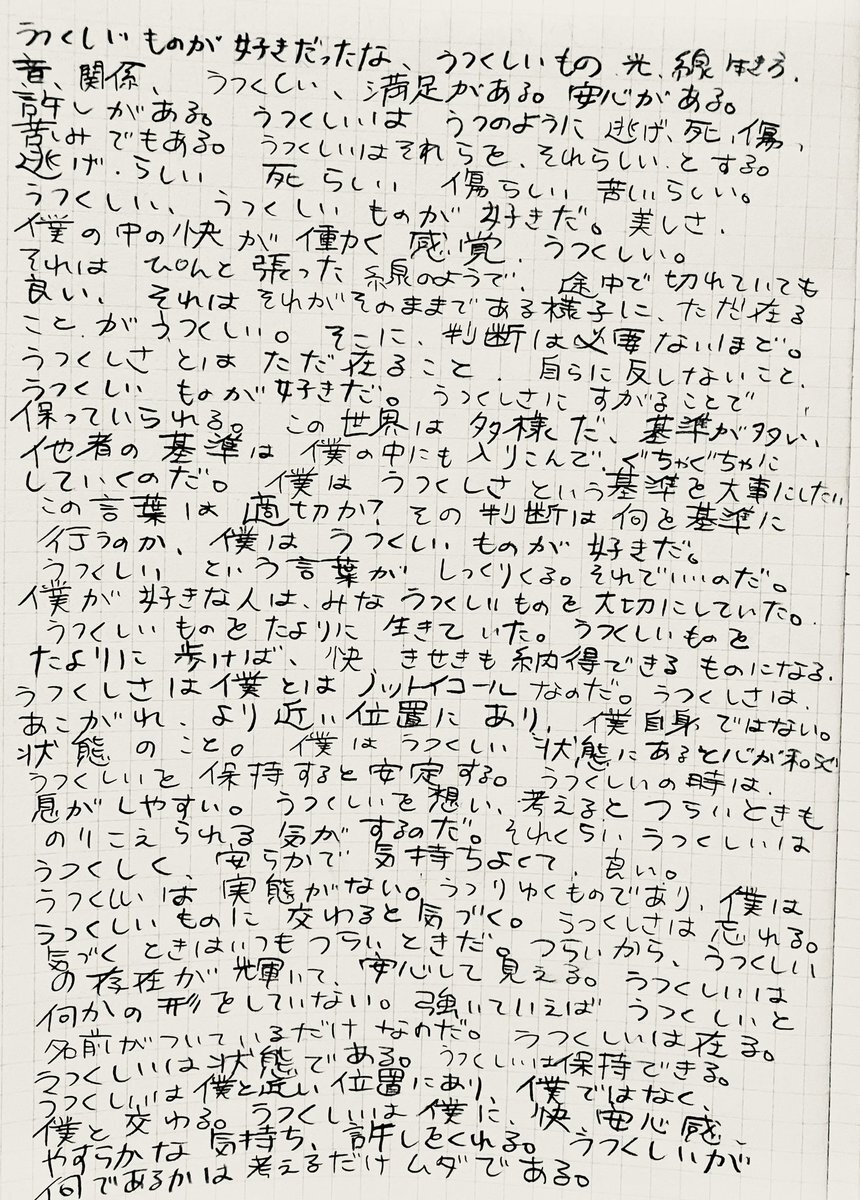 うつくしいものが好きだったな、うつくしいもの 光、線 生き方、
音、関係、 うつくしい、満足がある。安心がある。
許しがある。うつくしいは うつのように 逃げ、死、傷、
苦しみでもある。うつくしいはそれらを、それらしい、とする。
逃げ、らしい 死らしい 傷らしい 苦しいらしい。
うつくしい、うつくしい ものが 好きだ。美しさ、
僕の中の快が働く感覚、うつくしい。
それは ぴんと張った線のようで、途中で切れていても
良い、それはそれがそのままである様子に、ただ在る
こと、がうつくしい。そこに、判断は必要ないほど。
うつくしさとはただ在ること、自らに反しないこと、
うつくしい ものが好きだ。うつくしさにすがることで、
保っていられる。この世界は多様だ、基準が多い、
他者の基準は僕の中にも入りこんで、ぐちゃぐちゃに
していくのだ。僕は うつくしさという基準を大事にしたい
この言葉は適切か？その判断は何を基準に
行うのか、僕は うつくしい ものが 好きだ。
うつくしい という言葉が しっくりくる。それでいいのだ。
僕が好きな人は、みなうつくしいものを大切にしていた。
うつくしいものをたよりに 生きていた。うつくしいものを
たよりに 歩けば、快、きせきも納得できる ものになる。
うつくしさは僕とはノットイコールなのだ。うつくしさは、
あこがれ、より近い位置にあり、僕自身ではない。
状態のこと。僕はうつくしい 状態にあると心が和らぐ
うつくしいを保持すると安定する。うつくしいの時は、
息がしやすい。うつくしいを想い、考えるとつらいときも
のりこえられる気がするのだ。それくらいうつくしいは
うつくしく、安らかで気持ちよくて、良い。
うつくしいは実態がない。うつりゆくものであり、僕は
うつくしいものに交わると気づく。うつくしさは忘れる。
気づくときはいつもつらいときだ。つらいから、うつくしい
の存在が輝いて、安心して見える。うつくしいは
何かの形をしていない。強いていえば うつくしいと
名前がついているだけなのだ。うつくしいは在る。
うつくしいは状態である。うつくしいは保持できる。
うつくしいは僕と近い位置にあり、僕ではなく、
僕と交わる。うつくしいは僕に、快、安心感、
やすらかな気持ち、許しをくれる。うつくしいが
何であるかは考えるだけムダである。